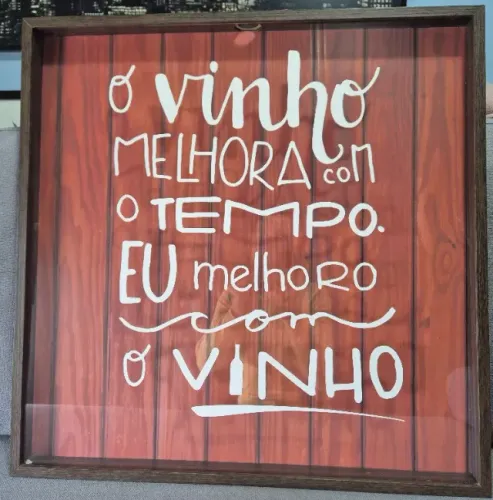 o vinho
MELHORA com
O TEMPO.
EU melhoro
com
o VINHO